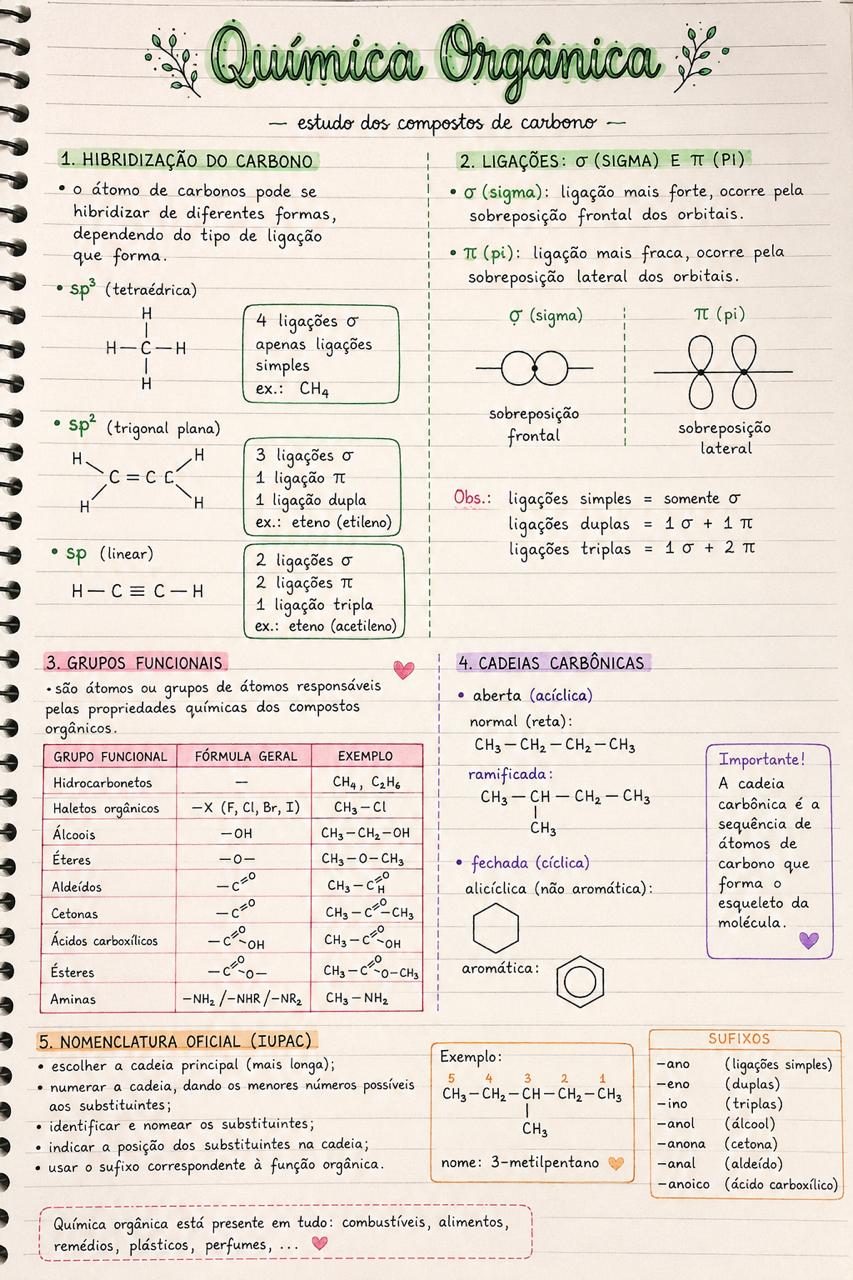 Química Orgânica
— estudo dos compostos de carbono —
1. HIBRIDIZAÇÃO DO CARBONO
• o átomo de carbonos pode se
hibridizar de diferentes formas,
dependendo do tipo de ligação
que forma.
• sp³ (tetraédrica)
H
H—C—H
H
4 ligações σ
apenas ligações
simples
ex.: CH₄
• sp² (trigonal plana)
H H
C = C C
H H
3 ligações σ
1 ligação π
1 ligação dupla
ex.: eteno (etileno)
• sp (linear)
H — C ≡ C — H
2 ligações σ
2 ligações π
1 ligação tripla
ex.: eteno (acetileno)
2. LIGAÇÕES: σ (SIGMA) E π (PI)
• σ (sigma): ligação mais forte, ocorre pela
sobreposição frontal dos orbitais.
• π (pi): ligação mais fraca, ocorre pela
sobreposição lateral dos orbitais.
σ (sigma)
sobreposição
frontal
π (pi)
sobreposição
lateral
Obs.: ligações simples = somente σ
ligações duplas = 1 σ + 1 π
ligações triplas = 1 σ + 2 π
3. GRUPOS FUNCIONAIS
• são átomos ou grupos de átomos responsáveis
pelas propriedades químicas dos compostos
orgânicos.
GRUPO FUNCIONAL FÓRMULA GERAL EXEMPLO
Hidrocarbonetos — CH₄, C₂H₆
Haletos orgânicos —X (F, Cl, Br, I) CH₃—Cl
Álcoois —OH CH₃—CH₂—OH
Éteres —O— CH₃—O—CH₃
Aldeídos —C=O CH₃—C=O H
Cetonas —C=O CH₃—C=O—CH₃
Ácidos carboxílicos —C=O—OH CH₃—C=O—OH
Ésteres —C=O—O— CH₃—C=O—O—CH₃
Aminas —NH₂/—NHR/—NR₂ CH₃—NH₂
4. CADEIAS CARBÔNICAS
• aberta (acíclica)
normal (reta):
CH₃—CH₂—CH₂—CH₃
ramificada:
CH₃—CH—CH₂—CH₃
CH₃
• fechada (cíclica)
alicíclica (não aromática):
aromática:
Importante!
A cadeia
carbônica é a
sequência de
átomos de
carbono que
forma o
esqueleto da
molécula.
5. NOMENCLATURA OFICIAL (IUPAC)
• escolher a cadeia principal (mais longa);
• numerar a cadeia, dando os menores números possíveis
aos substituintes;
• identificar e nomear os substituintes;
• indicar a posição dos substituintes na cadeia;
• usar o sufixo correspondente à função orgânica.
Exemplo:
5 4 3 2 1
CH₃—CH₂—CH—CH₂—CH₃
CH₃
nome: 3-metilpentano
SUFIXOS
—ano (ligações simples)
—eno (duplas)
—ino (triplas)
—anol (álcool)
—anona (cetona)
—anal (aldeído)
—anoico (ácido carboxílico)
Química orgânica está presente em tudo: combustíveis, alimentos,
remédios, plásticos, perfumes, ...